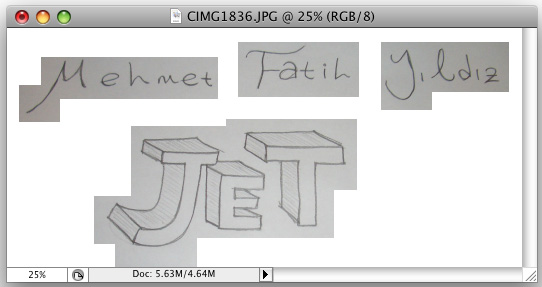 CIMG1836.JPG @ 25% (RGB/8)
Mehmet Fatih Yıldız
JET
25% Doc: 5.63M/4.64M